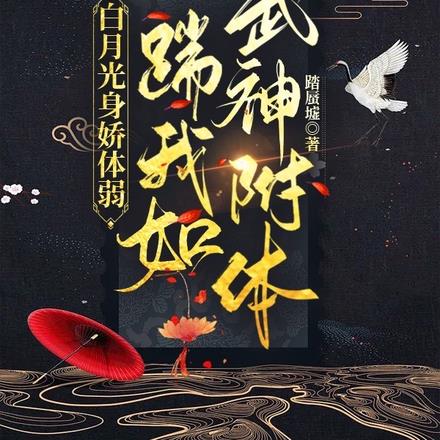 白月光身娇体弱
踹我如
武神附体
踏蜃墟◎著